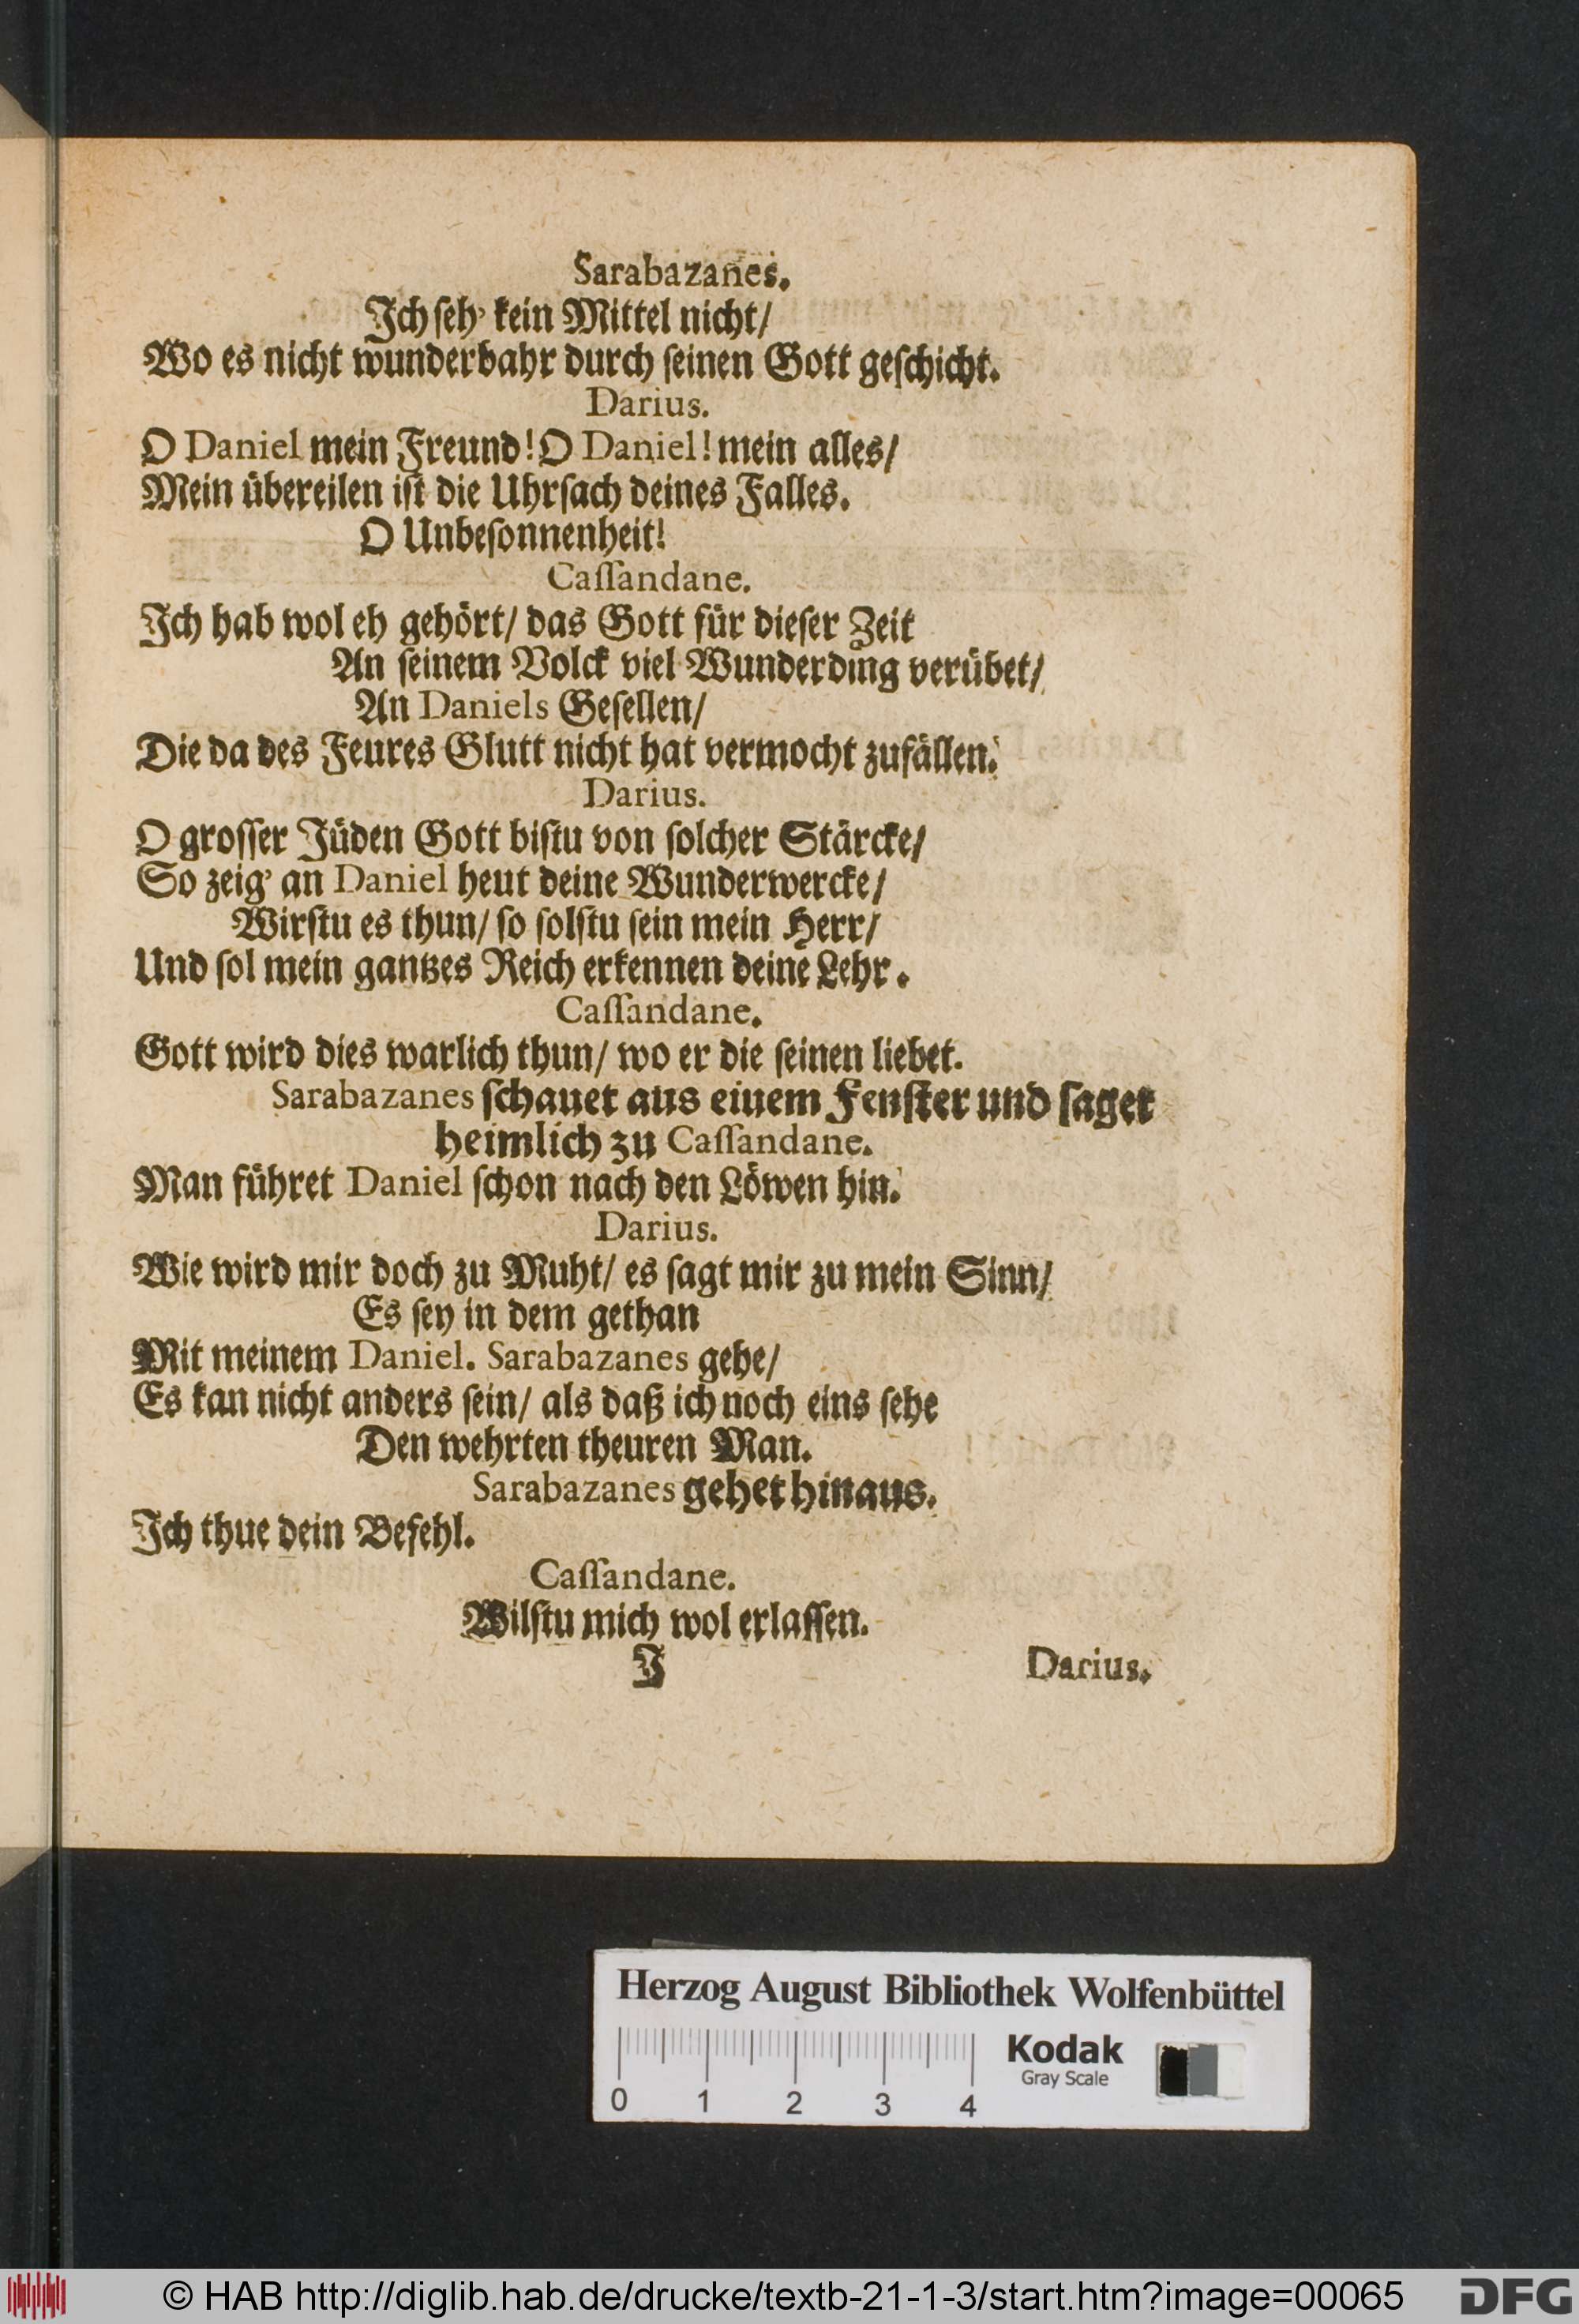 Sarabazanes.
Ich ſeh' kein Mittel nicht/
Wo es nicht wunderbahr durch ſeinen Gott geſchicht.
Darius.
O Daniel mein Freund! O Daniel! mein alles/
Mein übereilen iſt die Uhrſach deines Falles.
O Unbeſonnenheit!
Caſſandane.
Ich hab wol eh gehört/ das Gott für dieſer Zeit
An ſeinem Volck viel Wunderding verübet/
An Daniels Geſellen/
Die da des Feures Glutt nicht hat vermocht zufällen.
Darius.
O groſſer Jüden Gott biſtu von ſolcher Stärcke/
So zeig' an Daniel heut deine Wunderwercke/
Wirſtu es thun/ ſo ſolſtu ſein mein Herr/
Und ſol mein gantzes Reich erkennen deine Lehr.
Caſſandane.
Gott wird dies warlich thun/ wo er die ſeinen liebet.
Sarabazanes ſchauet aus einem Fenſter und ſaget
heimlich zu Caſſandane.
Man führet Daniel ſchon nach den Löwen hin.
Darius.
Wie wird mir doch zu Muht/ es ſagt mir zu mein Sinn/
Es ſey in dem gethan
Mit meinem Daniel. Sarabazanes gehe/
Es kan nicht anders ſein/ als daß ich noch eins ſehe
Den wehrten theuren Man.
Sarabazanes gehet hinaus.
Ich thue dein Befehl.
Caſſandane.
Wilſtu mich wol erlaſſen.
J Darius.
Herzog August Bibliothek Wolfenbüttel
Kodak
Gray Scale
0 1 2 3 4
© HAB http://diglib.hab.de/drucke/textb-21-1-3/start.htm?image=00065
DFG